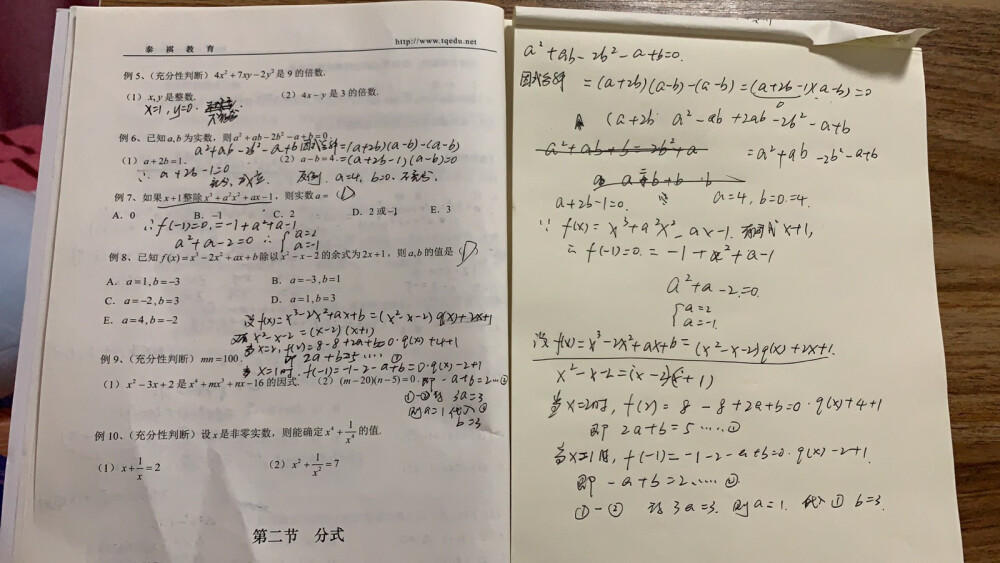 泰祺教育
http://www.tqedu.net
例 5、(充分性判断) 4x²+7xy−2y² 是 9 的倍数.
(1) x,y 是整数. (2) 4x−y 是 3 的倍数.
x=1, y=0.
例 6、已知 a,b 为实数，则 a²+ab−2b²−a+b=0.
a²+ab−2b²−a+b 因式分解=(a+2b)(a−b)−(a−b)
(1) a+2b=1. (2) a−b=4. =(a+2b−1)(a−b)=0
∴ a+2b−1=0 反例. a=4, b=0. 不充分.
充分, 成立.
例 7、如果 x+1 整除 x³+a²x²+ax−1，则实数 a=(D)
A. 0 B. −1 C. 2 D. 2 或−1 E. 3
∴f(−1)=0.=−1+a²+a−1
a²+a−2=0 ∴ {a=2
a=−1
例 8、已知 f(x)=x³−2x²+ax+b 除以 x²−x−2 的余式为 2x+1，则 a,b 的值是 (D)
A. a=1,b=−3 B. a=−3,b=1
C. a=−2,b=3 D. a=1,b=3
E. a=4,b=−2
设 f(x)=x³−2x²+ax+b=(x²−x−2)q(x)+2x+1
x²−x−2=(x−2)(x+1)
当x=2, f(2)=8−8+2a+b=0·q(x)+4+1
即 2a+b=5 ····①
例 9、(充分性判断) mn=100.
当x=1时. f(−1)=−1−2−a+b=0·q(x)−2+1
(1) x²−3x+2 是 x⁴+mx³+nx−16 的因式. (2) (m−20)(n−5)=0.
即 −a+b=2···②
①−②得 3a=3
则a=1 代入①
b=3
例 10、(充分性判断) 设 x 是非零实数，则能确定 x⁴+1/x⁴ 的值.
(1) x+1/x=2 (2) x²+1/x²=7
第二节 分式
a²+ab−2b²−a+b=0.
因式分解 =(a+2b)(a−b)−(a−b)=(a+2b−1)(a−b)=0
0
(a+2b a²−ab+2ab−2b²−a+b
a²+ab+b=2b²+a =a²+ab−2b²−a+b
a+2b−1=0. a=4, b=0.=4.
∵ f(x)=x³+a²x²−ax−1. x+1,
∴ f(−1)=0.=−1+a²+a−1
a²+a−2=0.
{a=2
a=−1.
设 f(x)=x³−2x²+ax+b=(x²−x−2)q(x)+2x+1.
x²−x−2=(x−2)(x+1)
当x=2时, f(2)=8−8+2a+b=0·q(x)+4+1
即 2a+b=5 ····①
当x=1时, f(−1)=−1−2−a+b=0·q(x)−2+1.
即 −a+b=2.····②
①−② 得 3a=3. 则a=1. 代入① b=3.